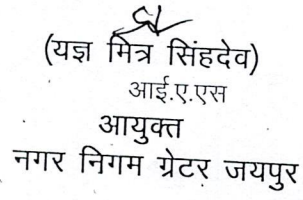 (यज्ञ मित्र सिंहदेव)
आई.ए.एस
आयुक्त
नगर निगम ग्रेटर जयपुर